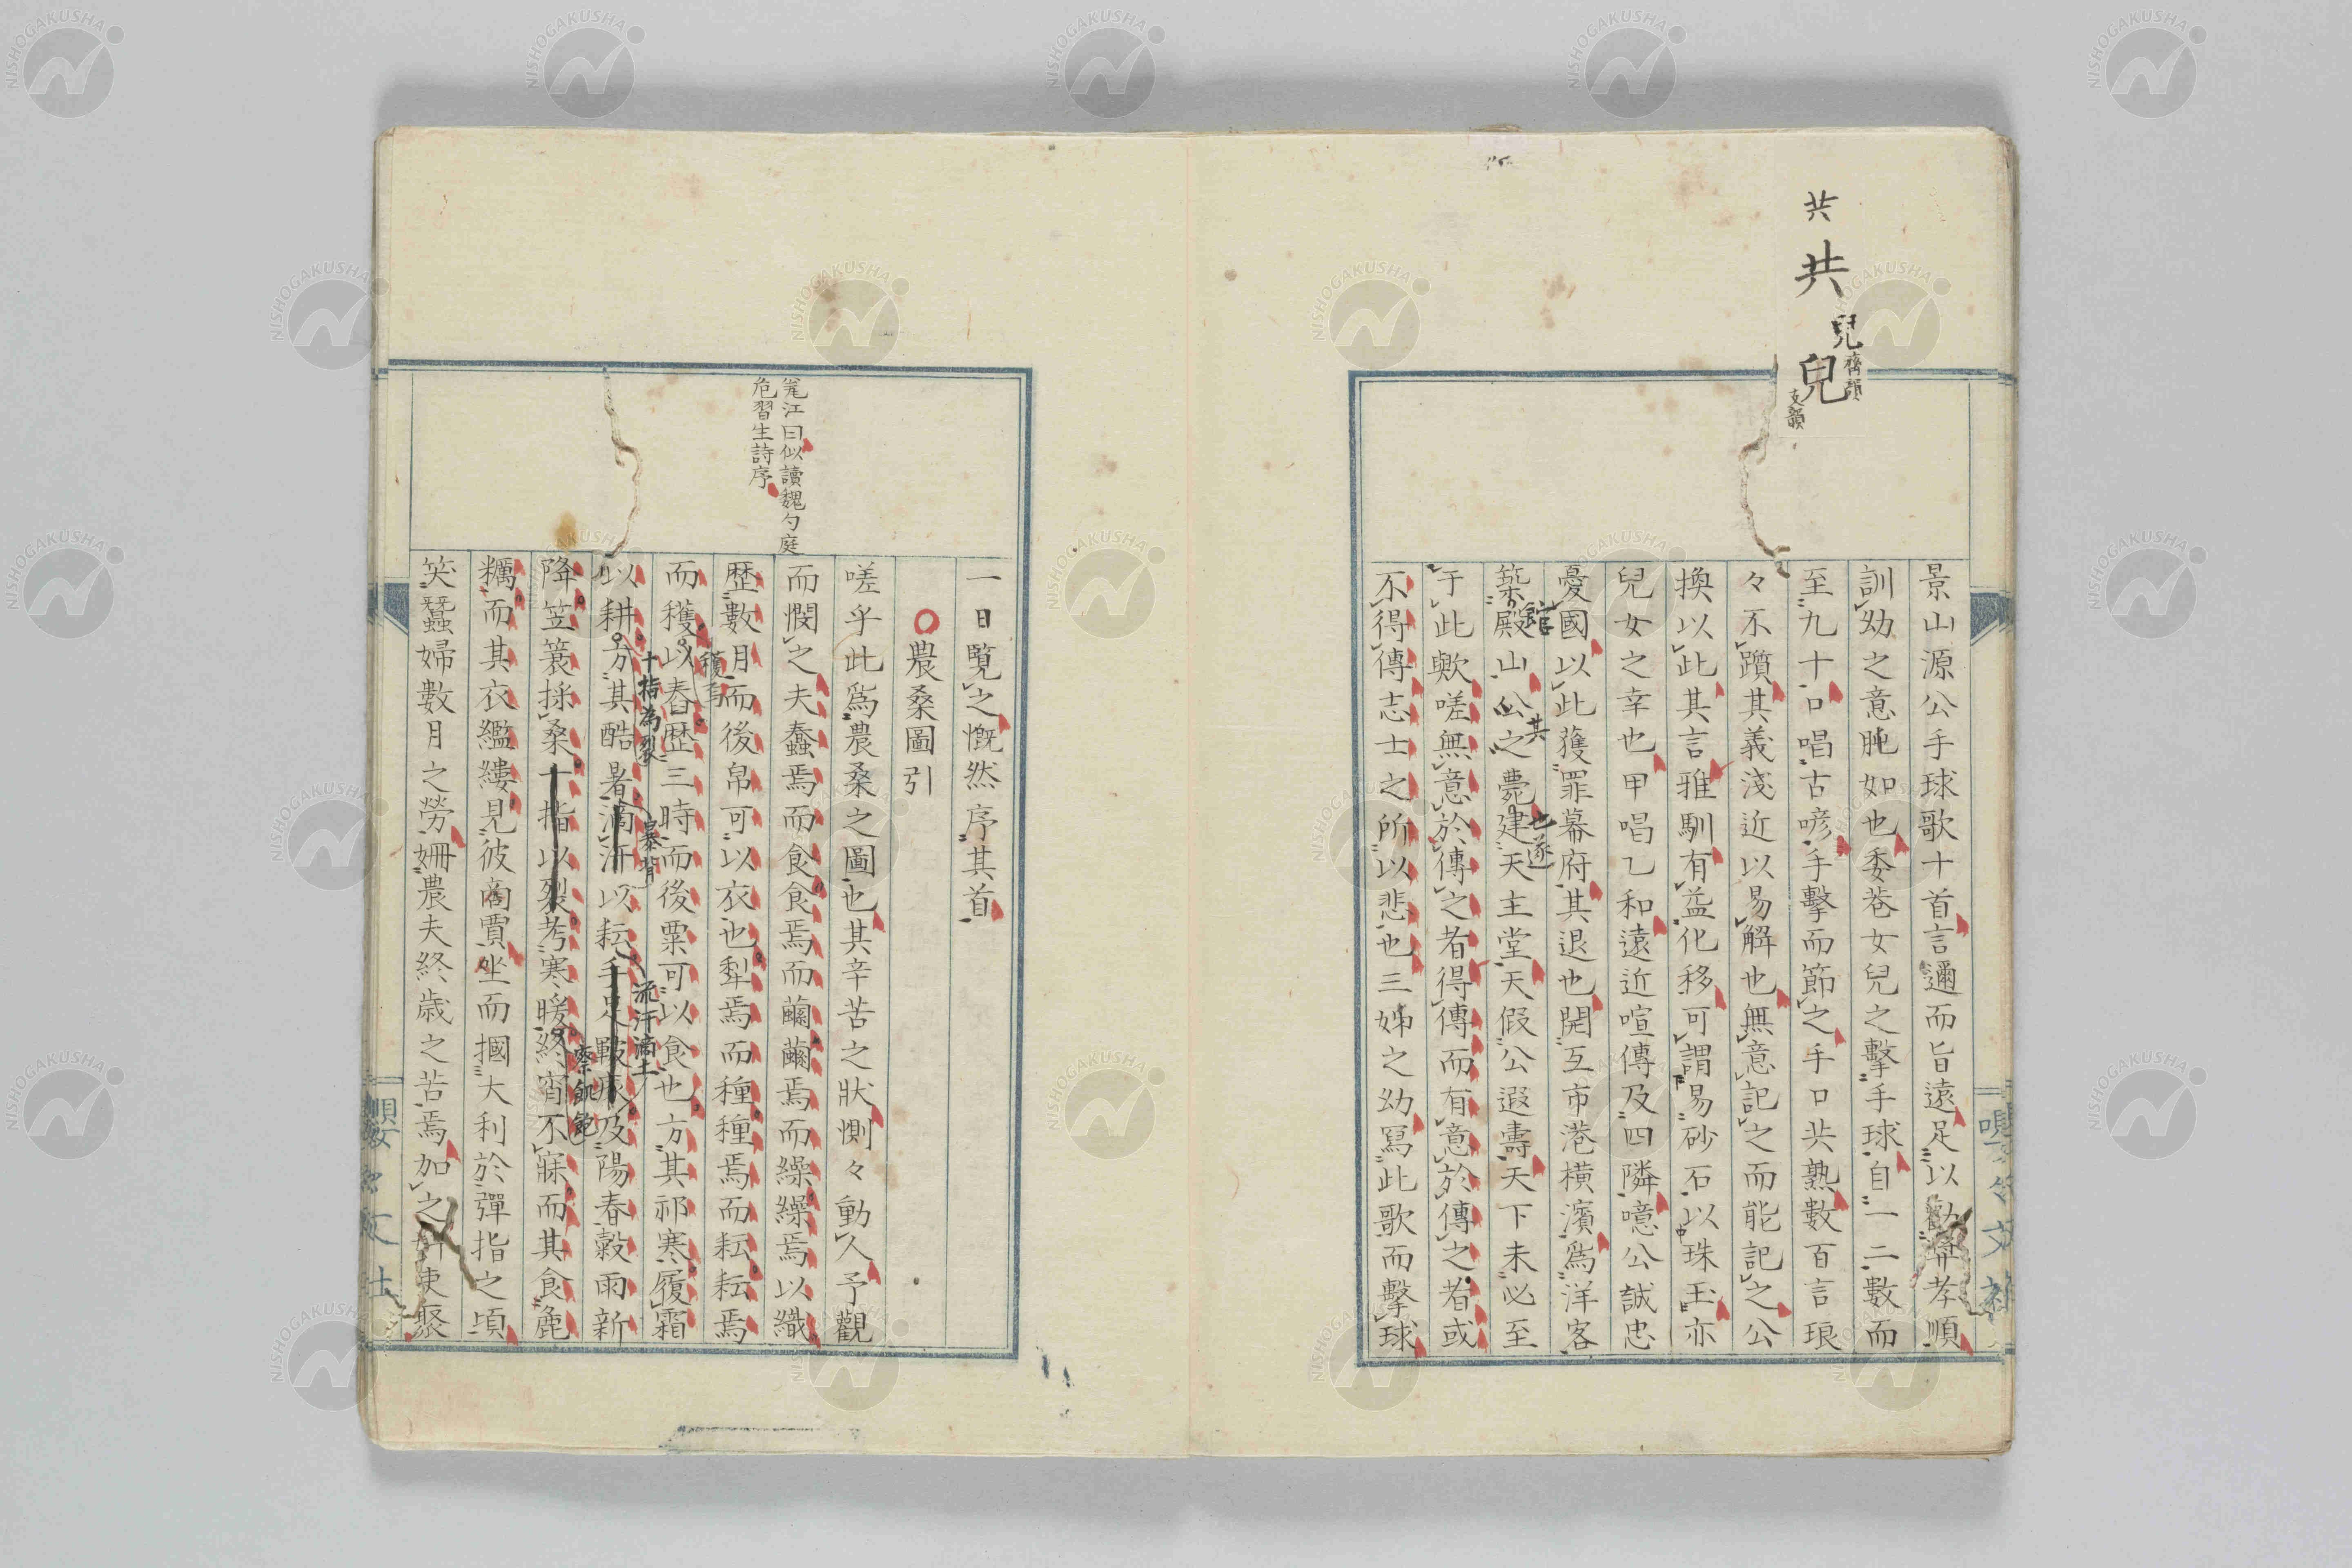 共
共
兒
齊韻
兒
支韻
景山源公手球歌十首言邇而旨遠足以勸孝順
訓幼之意肫如也委巷女兒之擊手球自一二數而
至九十口唱古諺手擊而節之手口共熟數百言琅
々不躓其義淺近以易解也無意記之而能記之公
換以此其言雅馴有益化移可謂易砂石以珠玉亦
兒女之幸也甲唱乙和遠近喧傳及四隣噫公誠忠
憂國以此獲罪幕府其退也開互市港橫濱為洋客
築殿山公之薨建天主堂天假公遐壽天下未必至
館
其
也遂
于此歟嗟無意於傳之者得傳而有意於傳之者或
不得傳志士之所以悲也三姊之幼寫此歌而擊球
一日覧之慨然序其首
農桑圖引
嗟乎此為農桑之圖也其辛苦之狀惻々動人予觀
江曰似讀魏勺庭
危習生詩序
而憫之夫蠶焉而食食焉而繭繭焉而繰繰焉以織
歴數月而後帛可以衣也犁焉而種種焉而耘耘焉
而穫以舂歴三時而後粟可以食也方其祁寒履霜
穫焉
以耕方其酷暑滴汗以耘手足皸瘃及陽春穀雨新
十指為裂
暴背
流汗滴土
降笠簑採桑十指以裂考寒暖終宵不寐而其食麁
察飢飽
糲而其衣繿縷見彼商賈坐而摑大利於彈指之頃
笑蠶婦數月之勞姍農夫終歳之苦焉加之奸吏聚
NISHOGAKUSHA